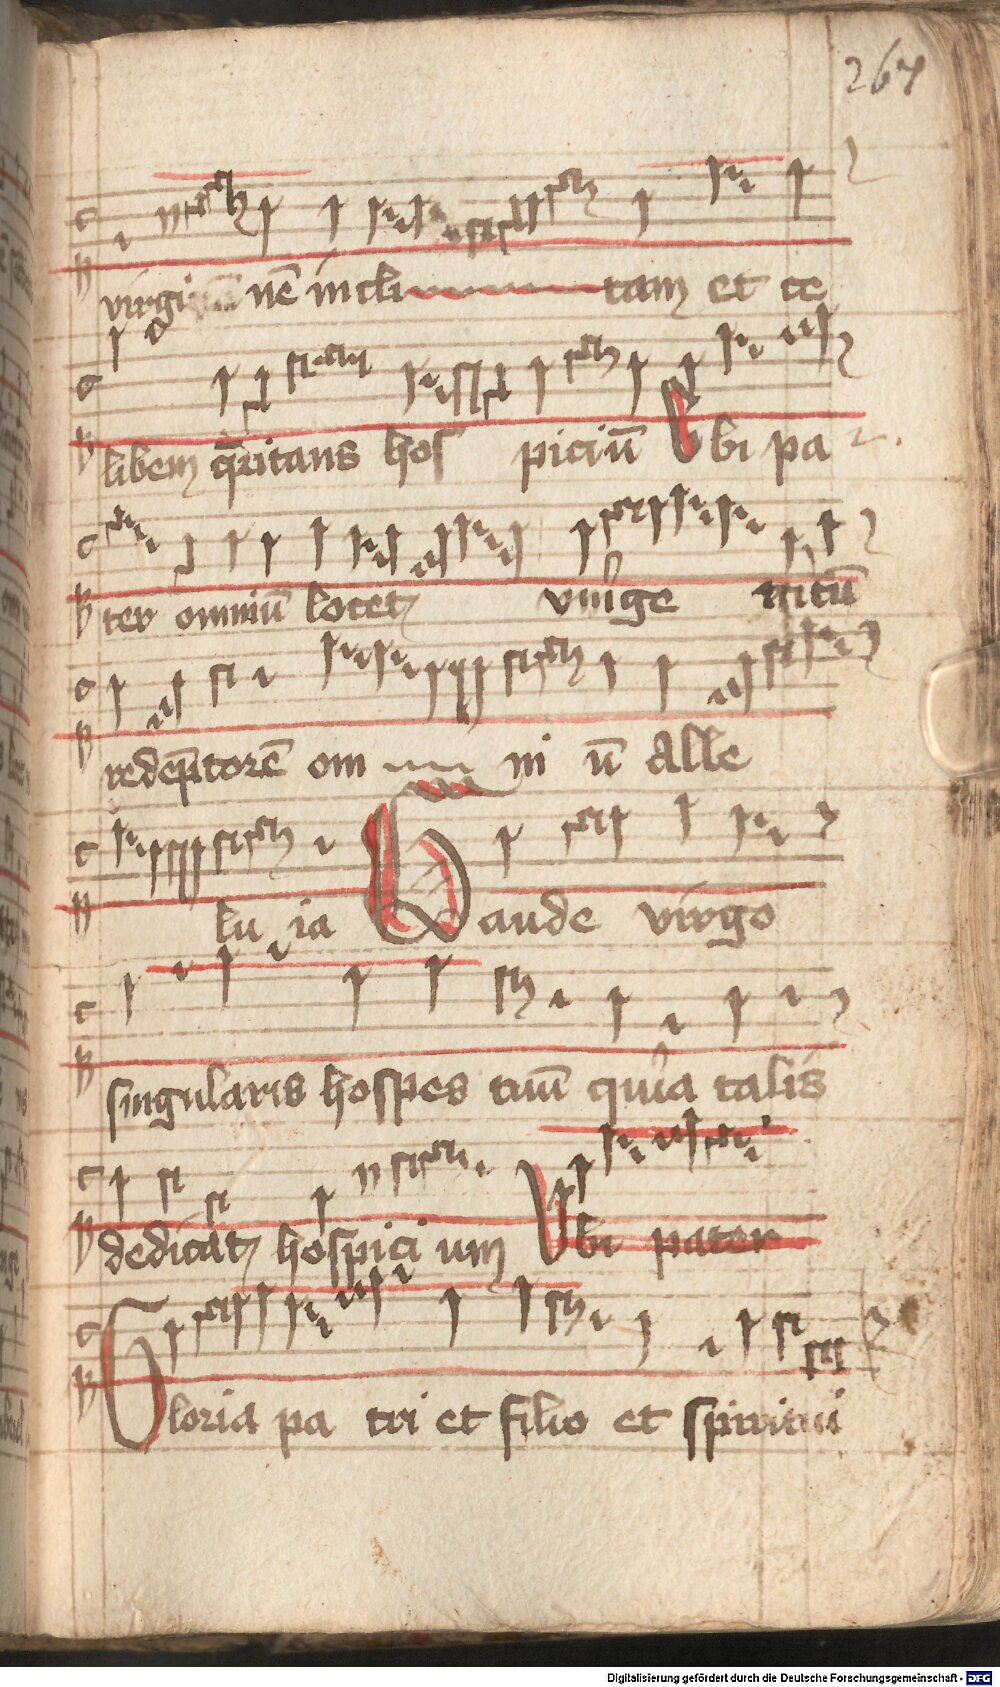 267
virgi nē incli tam et ce
libem q̄ritans hos piciū Vbi pa
ter omniū locet vnige nitū
redēptorē om ni ū Alle
lu ia Gaude virgo
singularis hospes tuū quia talis
dedicat hospici um Vbi pater
Gloria pa tri et filio et spiritui
Digitalisierung gefördert durch die Deutsche Forschungsgemeinschaft - DFG